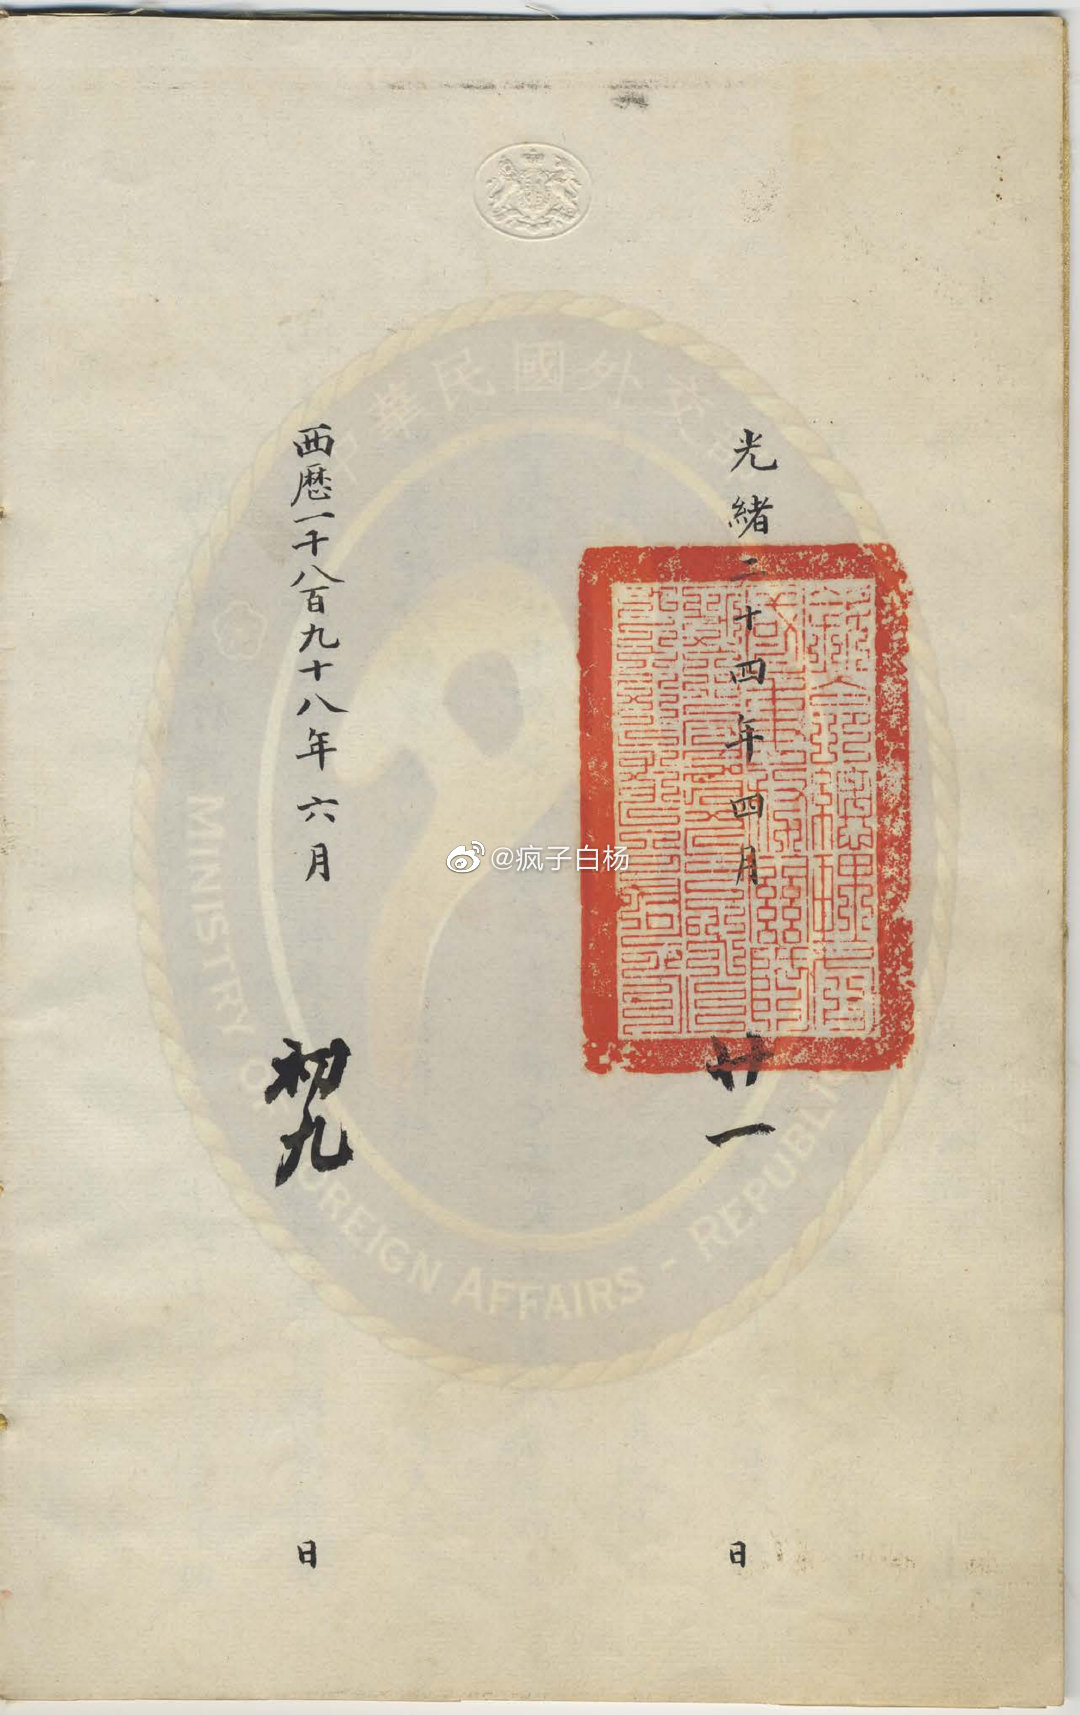 光緒二十四年四月廿一日
西歷一千八百九十八年六月初九日
中華民國外交
MINISTRY OF FOREIGN AFFAIRS - REPUBLIC
@疯子白杨